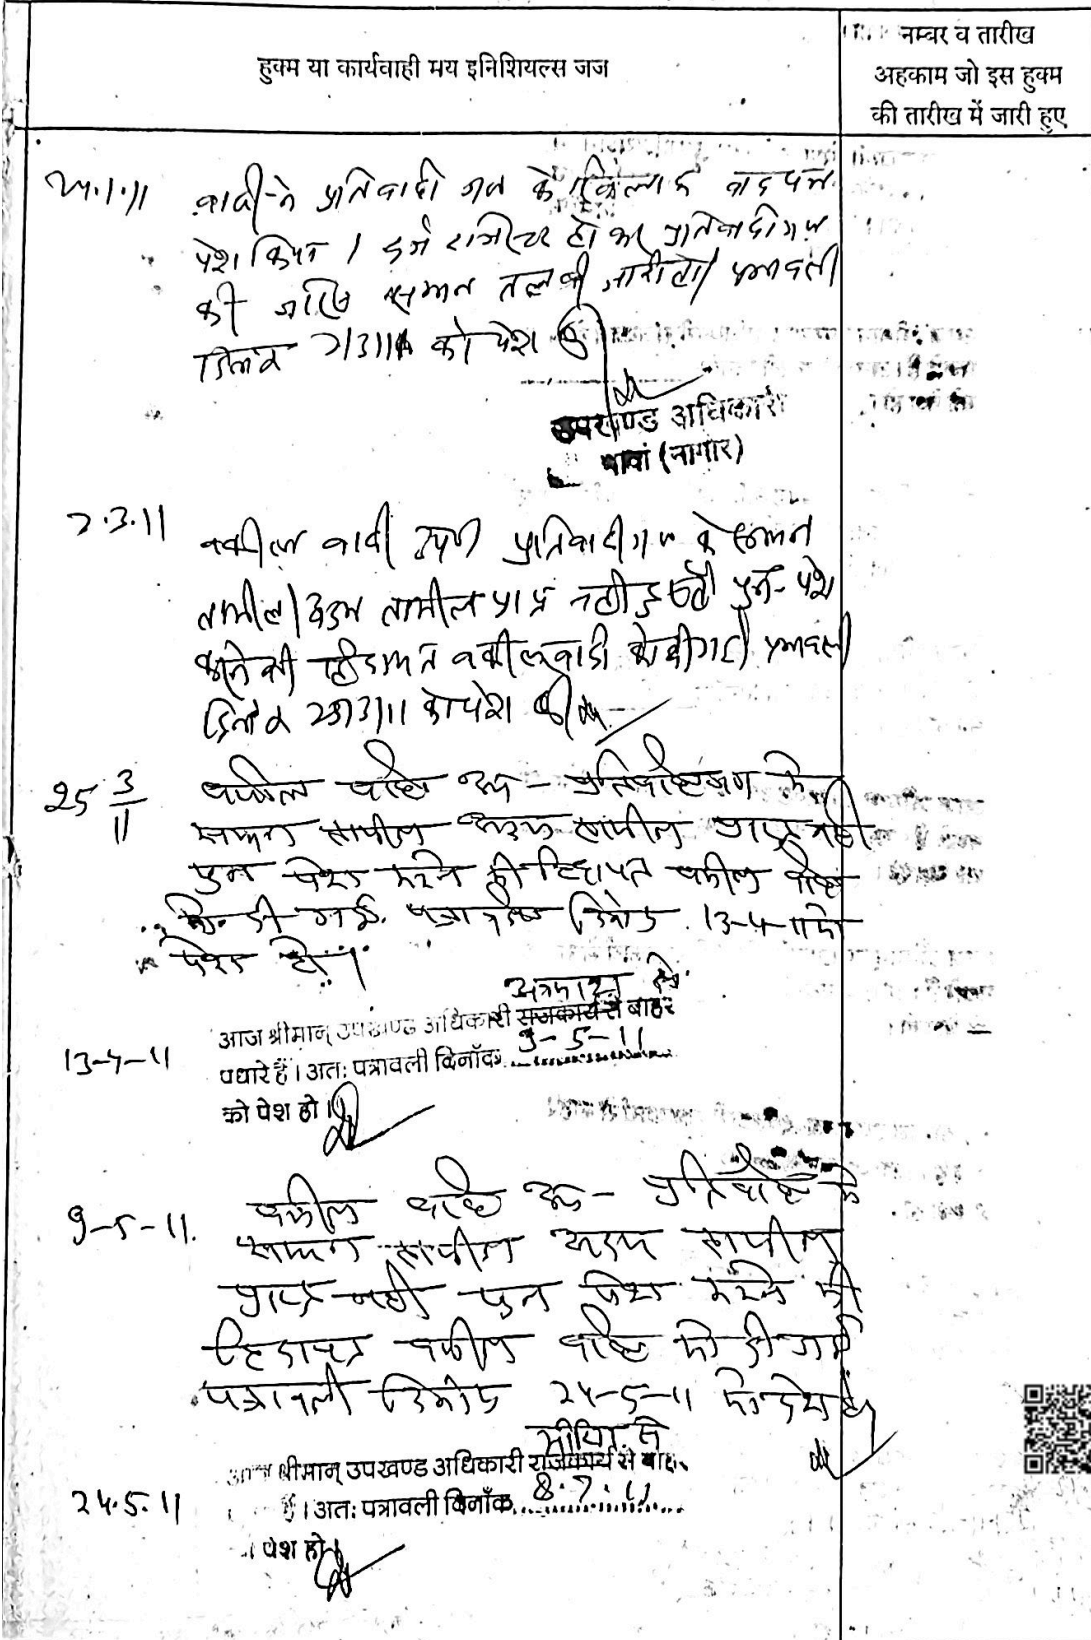 हुक्म या कार्यवाही मय इनिशियल्स जज
नम्बर व तारीख
अहकाम जो इस हुक्म
की तारीख में जारी हुए
24.1.11 वादी ने प्रतिवादी गण के खिलाफ वाद पत्र
पेश किया । दर्ज रजिस्टर हो कर प्रतिवादीगण
की जरिये सम्मन तलबी जारी हो। पत्रावली
दिनांक 2/3/11 को पेश हो
उपखण्ड अधिकारी
नावां (नागौर)
2.3.11 वकील वादी उप0 प्रतिवादीगण के सम्मन
तामील/अदम तामील प्राप्त नहीं हुए पुनः पेश
करने की हिदायत वकील वादी को दी गई। पत्रावली
दिनांक 25/3/11 को पेश हो
25 3/11 वकील वादी उप- प्रतिवादीगण के
सम्मन तामील अदम तामील प्राप्त नहीं
पुन पेश करने की हिदायत वकील वादी
को दी गई. पत्रावली दिनांक 13-4-11 को
पेश हो।
अवकाश पर
आज श्रीमान् उपखण्ड अधिकारी राजकार्य से बाहर
13-4-11 पधारे हैं । अतः पत्रावली दिनाँक 9-5-11
को पेश हो ।
9-5-11. वकील वादी उप- प्रतिवादी के
सम्मन तामील अदम तामील
प्राप्त नहीं पुन पेश करने की
हिदायत वकील वादी को दी गई
पत्रावली दिनांक 24-5-11 को पेश हो
मीटिंग में
आज श्रीमान् उपखण्ड अधिकारी राजकार्य से बाहर
24.5.11 हैं । अतः पत्रावली दिनाँक 8.7.11
पेश हो